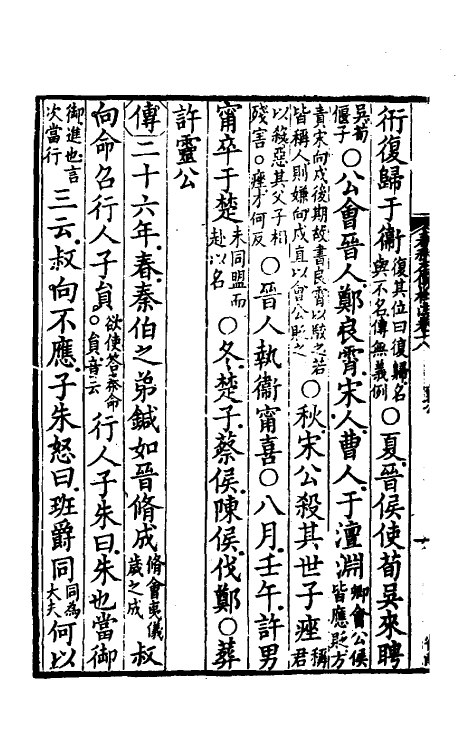 衎復歸于衞復其位曰復歸名與不名傳無義例○夏晉侯使荀吳來聘
吳荀偃子○公會晉人鄭良霄宋人曹人于澶淵卿會公侯皆應貶方
責宋向戌後期故書良霄以駮之若皆稱人則嫌向戌直以會公貶之○秋宋公殺其世子痤稱君
以殺惡其父子相殘害○痤才何反○晉人執衞甯喜○八月壬午許男
甯卒于楚未同盟而赴以名○冬楚子蔡侯陳侯伐鄭○葬
許靈公
傳二十六年春秦伯之弟鍼如晉脩成脩會夷儀歲之成叔
向命召行人子員欲使答秦命○員音云行人子朱曰朱也當御
御進也言次當行三云叔向不應子朱怒曰班爵同同為大夫何以